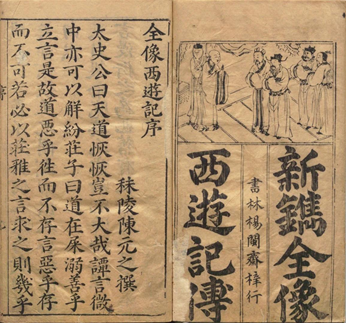 新鐫全像
書林楊閩齋梓行
西遊記傳
全像西遊記序
秣陵陳元之撰
太史公曰天道恢恢豈不大哉譚言微
中亦可以解紛莊子曰道在屎溺善乎
立言是故道惡乎徃而不存言惡乎存
而不可若必以莊雅之言求之則幾乎